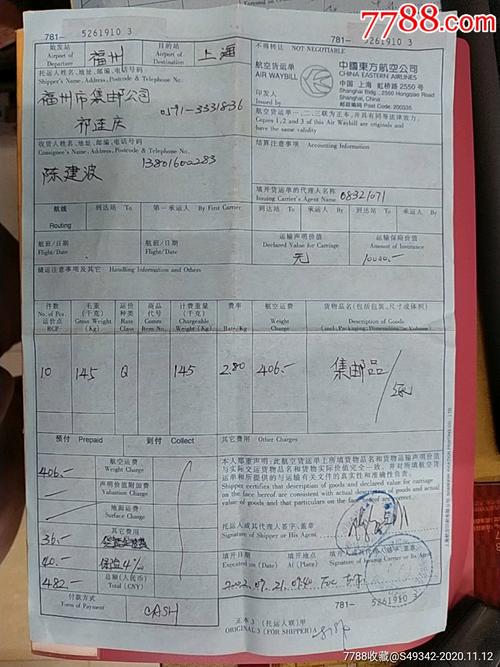 7788.com
781— 5261910 3
781— 5261910 3
始发站
Airport of
Departure
福州
目的站
Airport of
Destination
上海
不得转让 NOT NEGOTIABLE
航空货运单
AIR WAYBILL
印发人
Issued by
中國東方航空公司
CHINA EASTERN AIRLINES
中国 上海 虹桥路 2550 号
Shanghai Bldg., 2550 Hongqiao Road
Shanghai, China
Post Code: 200335
托运人姓名、地址、邮编、电话号码
Shipper's Name, Address, Postcode & Telephone No.
福州市集邮公司
0591-3331836
祁连庆
航空货运单一、二、三联为正本,并具有同等法律效力。
Copies 1,2 and 3 of this Air Waybill are originals and
have the same validity
收货人姓名、地址、邮编、电话号码
Consignee's Name, Address, Postcode & Telephone No.
13801600283
陈建波
结算注意事项 Accounting Information
填开货运单的代理人名称
Issuing Carrier's Agent Name
08321071
航线
Routing
到达站 To
第一承运人 By First Carrier
到达站 To
承运人 By
到达站 To
承运人 By
航班/日期
Flight/Date
航班/日期
Flight/Date
运输声明价值
Declared Value for Carriage
元
运输保险价值
Amount of Insurance
10000.-
储运注意事项及其它 Handling Information and Others
件数
No. of Pcs
运价点
RCP
毛重
(千克)
Gross Weight
(Kg)
运价
种类
Rate
Class
商品
代号
Comm.
Item No.
计费重量
(千克)
Chargeable
Weight (Kg)
费率
Rate/Kg
航空运费
Weight
Charge
货物品名(包括包装、尺寸或体积)
Description of Goods
(incl. Packaging, Dimensions or Volume)
10 145 Q 145 2.80 406.- 集邮品
预付 Prepaid
到付 Collect
其它费用 Other Charges
406.-
航空运费
Weight Charge
声明价值附加费
Valuation Charge
地面运费
Surface Charge
36.-
其它费用
40.- 保险 4‰
482.-
总额(人民币)
Total (CNY)
付款方式
Form of Payment
CASH
本人郑重声明:此航空货运单上所填货物品名和货物运输声明价值
与实际交运货物品名和货物实际价值完全一致。并对所填航空货运
单和所提供的与运输有关文件的真实性和准确性负责。
Shipper certifies that description of goods and declared value for carriage
on the face hereof are consistent with actual description of goods and actual
value of goods and that particulars on the face hereof are correct.
托运人或其代理人签字、盖章
Signature of Shipper or His Agent
填开日期
Executed on (Date)
填开地点
At (Place)
填开人或其代理人签字、盖章
Signature of Issuing Carrier or Its Agent
781— 5261910 3
正本 3 (托运人联) 甲
ORIGINAL 3 (FOR SHIPPER) A
7788收藏@S49342-2020.11.12